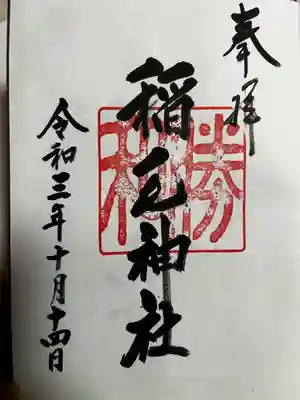 奉拝
稲乃神社
令和三年十月十四日